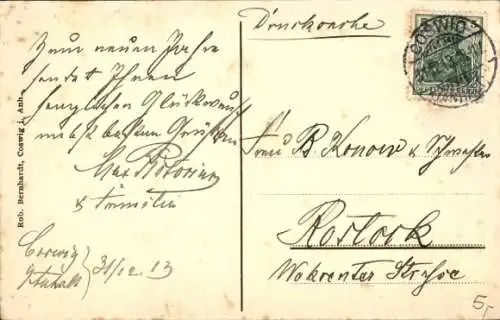 Zum neuen Jahre
sendet Ihnen
herzlichen Glückwunsch
nebst besten Grüßen
Max
& Familie
Coswig
Anhalt
31/12.13
Rob. Bernhardt, Coswig i. Anh.
Drucksache
COSWIG
Frau B. Konow &
Rostock
Wokrenter Straße
5,